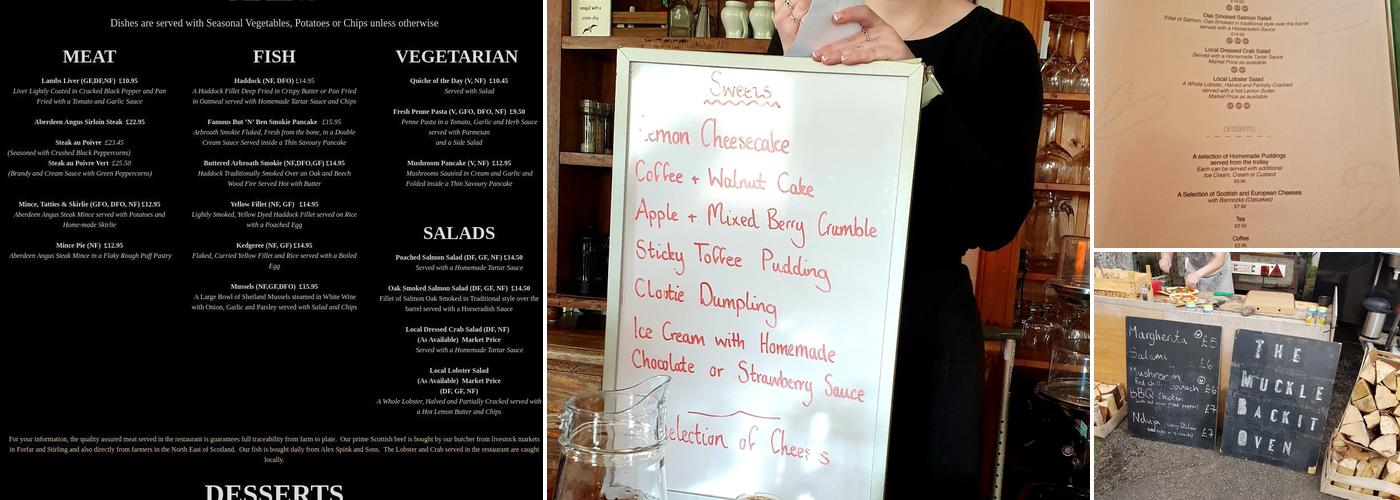 Dishes are served with Seasonal Vegetables, Potatoes or Chips unless otherwise
MEAT
Lambs Liver (GF,DF,NF) £10.95
Liver Lightly Coated in Cracked Black Pepper and Pan
Fried with a Tomato and Garlic Sauce
Aberdeen Angus Sirloin Steak £22.95
Steak au Poivre £23.45
(Seasoned with Crushed Black Peppercorns)
Steak au Poivre Vert £25.50
(Brandy and Cream Sauce with Green Peppercorns)
Mince, Tatties & Skirlie (GFO, DFO, NF) £12.95
Aberdeen Angus Steak Mince served with Potatoes and
Home-made Skirlie
Mince Pie (NF) £12.95
Aberdeen Angus Steak Mince in a Flaky Rough Puff Pastry
FISH
Haddock (NF, DFO) £14.95
A Haddock Fillet Deep Fried in Crispy Batter or Pan Fried
in Oatmeal served with Homemade Tartar Sauce and Chips
Famous But 'N' Ben Smokie Pancake £15.95
Arbroath Smokie Flaked, Fresh from the bone, in a Double
Cream Sauce Served inside a Thin Savoury Pancake
Buttered Arbroath Smokie (NF,DFO,GF) £14.95
Haddock Traditionally Smoked Over an Oak and Beech
Wood Fire Served Hot with Butter
Yellow Fillet (NF, GF) £14.95
Lightly Smoked, Yellow Dyed Haddock Fillet served on Rice
with a Poached Egg
Kedgeree (NF, GF) £14.95
Flaked, Curried Yellow Fillet and Rice served with a Boiled
Egg
Mussels (NF,GF,DFO) £15.95
A Large Bowl of Shetland Mussels steamed in White Wine
with Onion, Garlic and Parsley served with Salad and Chips
VEGETARIAN
Quiche of the Day (V, NF) £10.45
Served with Salad
Fresh Penne Pasta (V, GFO, DFO, NF) £9.50
Penne Pasta in a Tomato, Garlic and Herb Sauce
served with Parmesan
and a Side Salad
Mushroom Pancake (V, NF) £12.95
Mushrooms Sautéed in Cream and Garlic and
Folded inside a Thin Savoury Pancake
SALADS
Poached Salmon Salad (DF, GF, NF) £14.50
Served with a Homemade Tartar Sauce
Oak Smoked Salmon Salad (DF, GF, NF) £14.50
Fillet of Salmon Oak Smoked in Traditional style over the
barrel served with a Horseradish Sauce
Local Dressed Crab Salad (DF, NF)
(As Available) Market Price
Served with a Homemade Tartar Sauce
Local Lobster Salad
(As Available) Market Price
(DF, GF, NF)
A Whole Lobster, Halved and Partially Cracked served with
a Hot Lemon Butter and Chips
For your information, the quality assured meat served in the restaurant is guarantees full traceability from farm to plate. Our prime Scottish beef is bought by our butcher from livestock markets
in Forfar and Stirling and also directly from farmers in the North East of Scotland. Our fish is bought daily from Alex Spink and Sons. The Lobster and Crab served in the restaurant are caught
locally.
DESSERTS
Sweets
Lemon Cheesecake
Coffee + Walnut Cake
Apple + Mixed Berry Crumble
Sticky Toffee Pudding
Clootie Dumpling
Ice Cream with Homemade
Chocolate or Strawberry Sauce
Selection of Cheeses
Oak Smoked Salmon Salad
Fillet of Salmon, Oak Smoked in traditional style over the barrel
served with a Horseradish Sauce
£14.50
Local Dressed Crab Salad
Served with a Homemade Tartar Sauce
Market Price as available
Local Lobster Salad
A Whole Lobster, Halved and Partially Cracked
served with a hot Lemon Butter
Market Price as available
DESSERTS
A selection of Homemade Puddings
served from the trolley
Each can be served with additional
Ice Cream, Cream or Custard
£6.95
A Selection of Scottish and European Cheeses
with Bannocks (Oatcakes)
£7.50
Tea
£2.50
Coffee
£2.95
Margherita V £5
Salami £6
Mushroom V
Red chilli, spinach £6
BBQ Chicken £7
Nduja £7
THE
MUCKLE
BACKIT
OVEN